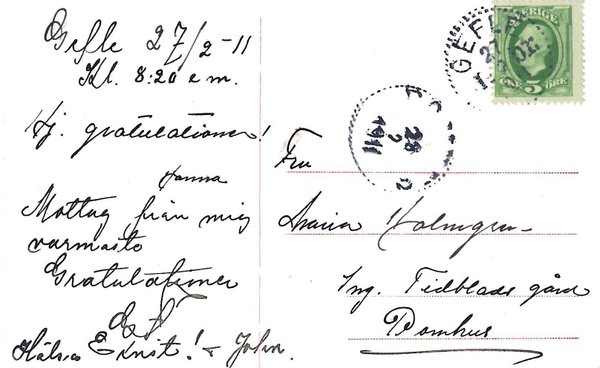 Gefle 27/2-11
Kl. 8:20 e m.
Hj. gratulationer!
Hanna
Mottag från mig
varmaste
Gratulationer
Ernst! + John.
SVERIGE
GEFLE
27
5 ÖRE
28
2
1911
Fru
Maria Holmgren
Ing. Tidblads gård
Domhus